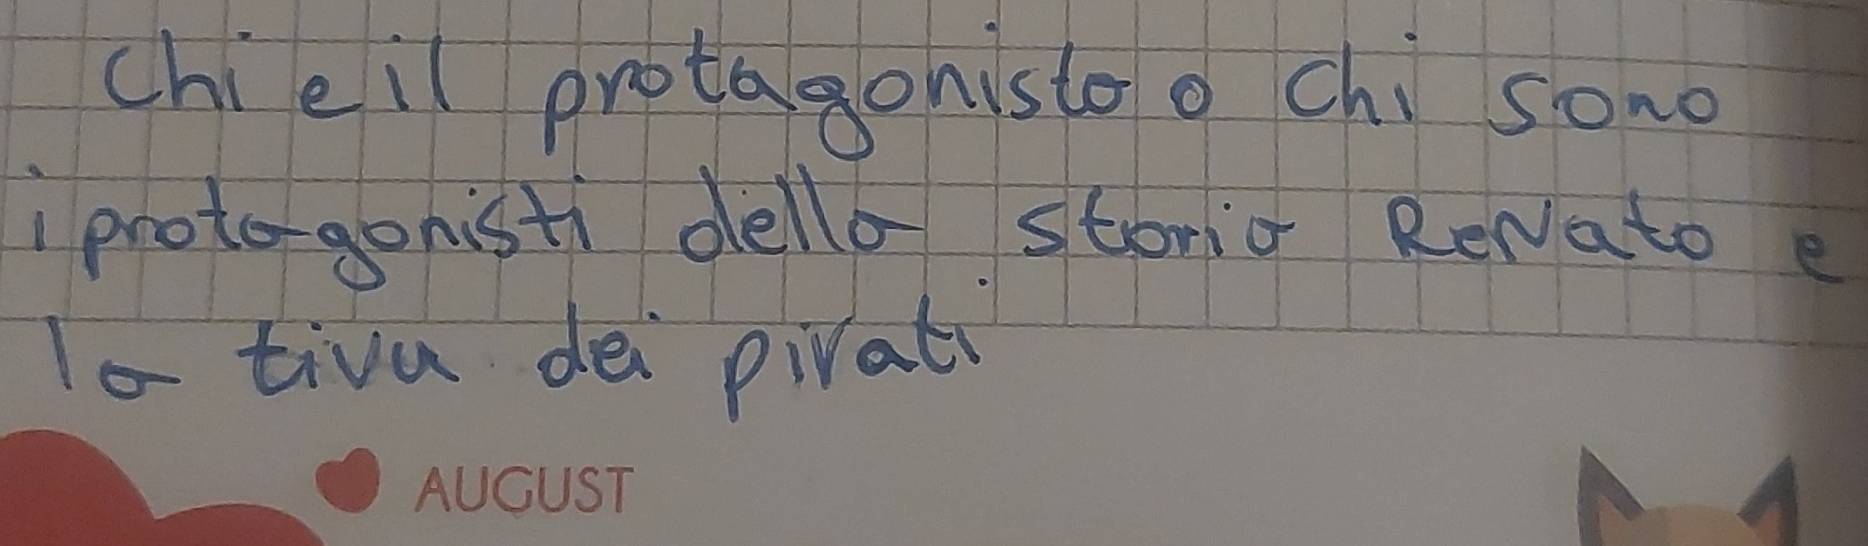 Chi e il protagonista o Chi sono
i protagonisti della storia ReNato e
la tivu dei pirati
AUGUST